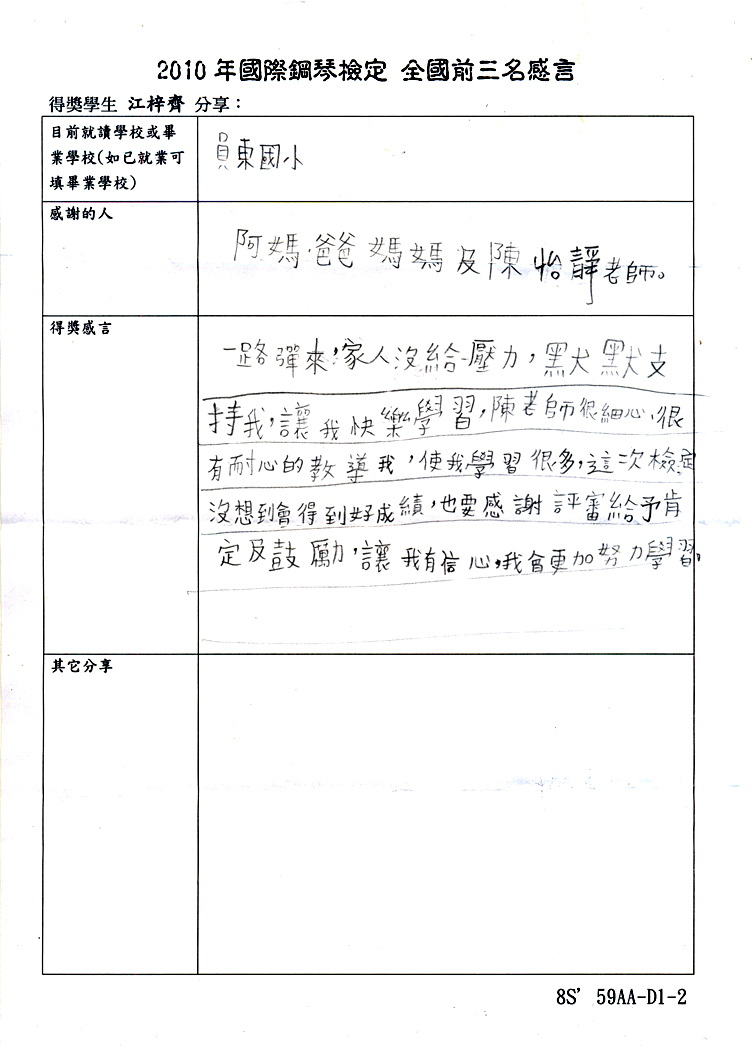 2010 年國際鋼琴檢定 全國前三名感言
得獎學生 江梓齊 分享：
目前就讀學校或畢
業學校(如已就業可
填畢業學校)
員東國小
感謝的人
阿媽、爸爸媽媽及陳怡靜老師。
得獎感言
一路彈來，家人沒給壓力，默默支
持我，讓我快樂學習，陳老師很細心、很
有耐心的教導我，使我學習很多，這次檢定
沒想到會得到好成績，也要感謝評審給予肯
定及鼓勵，讓我有信心，我會更加努力學習。
其它分享
8S' 59AA-D1-2